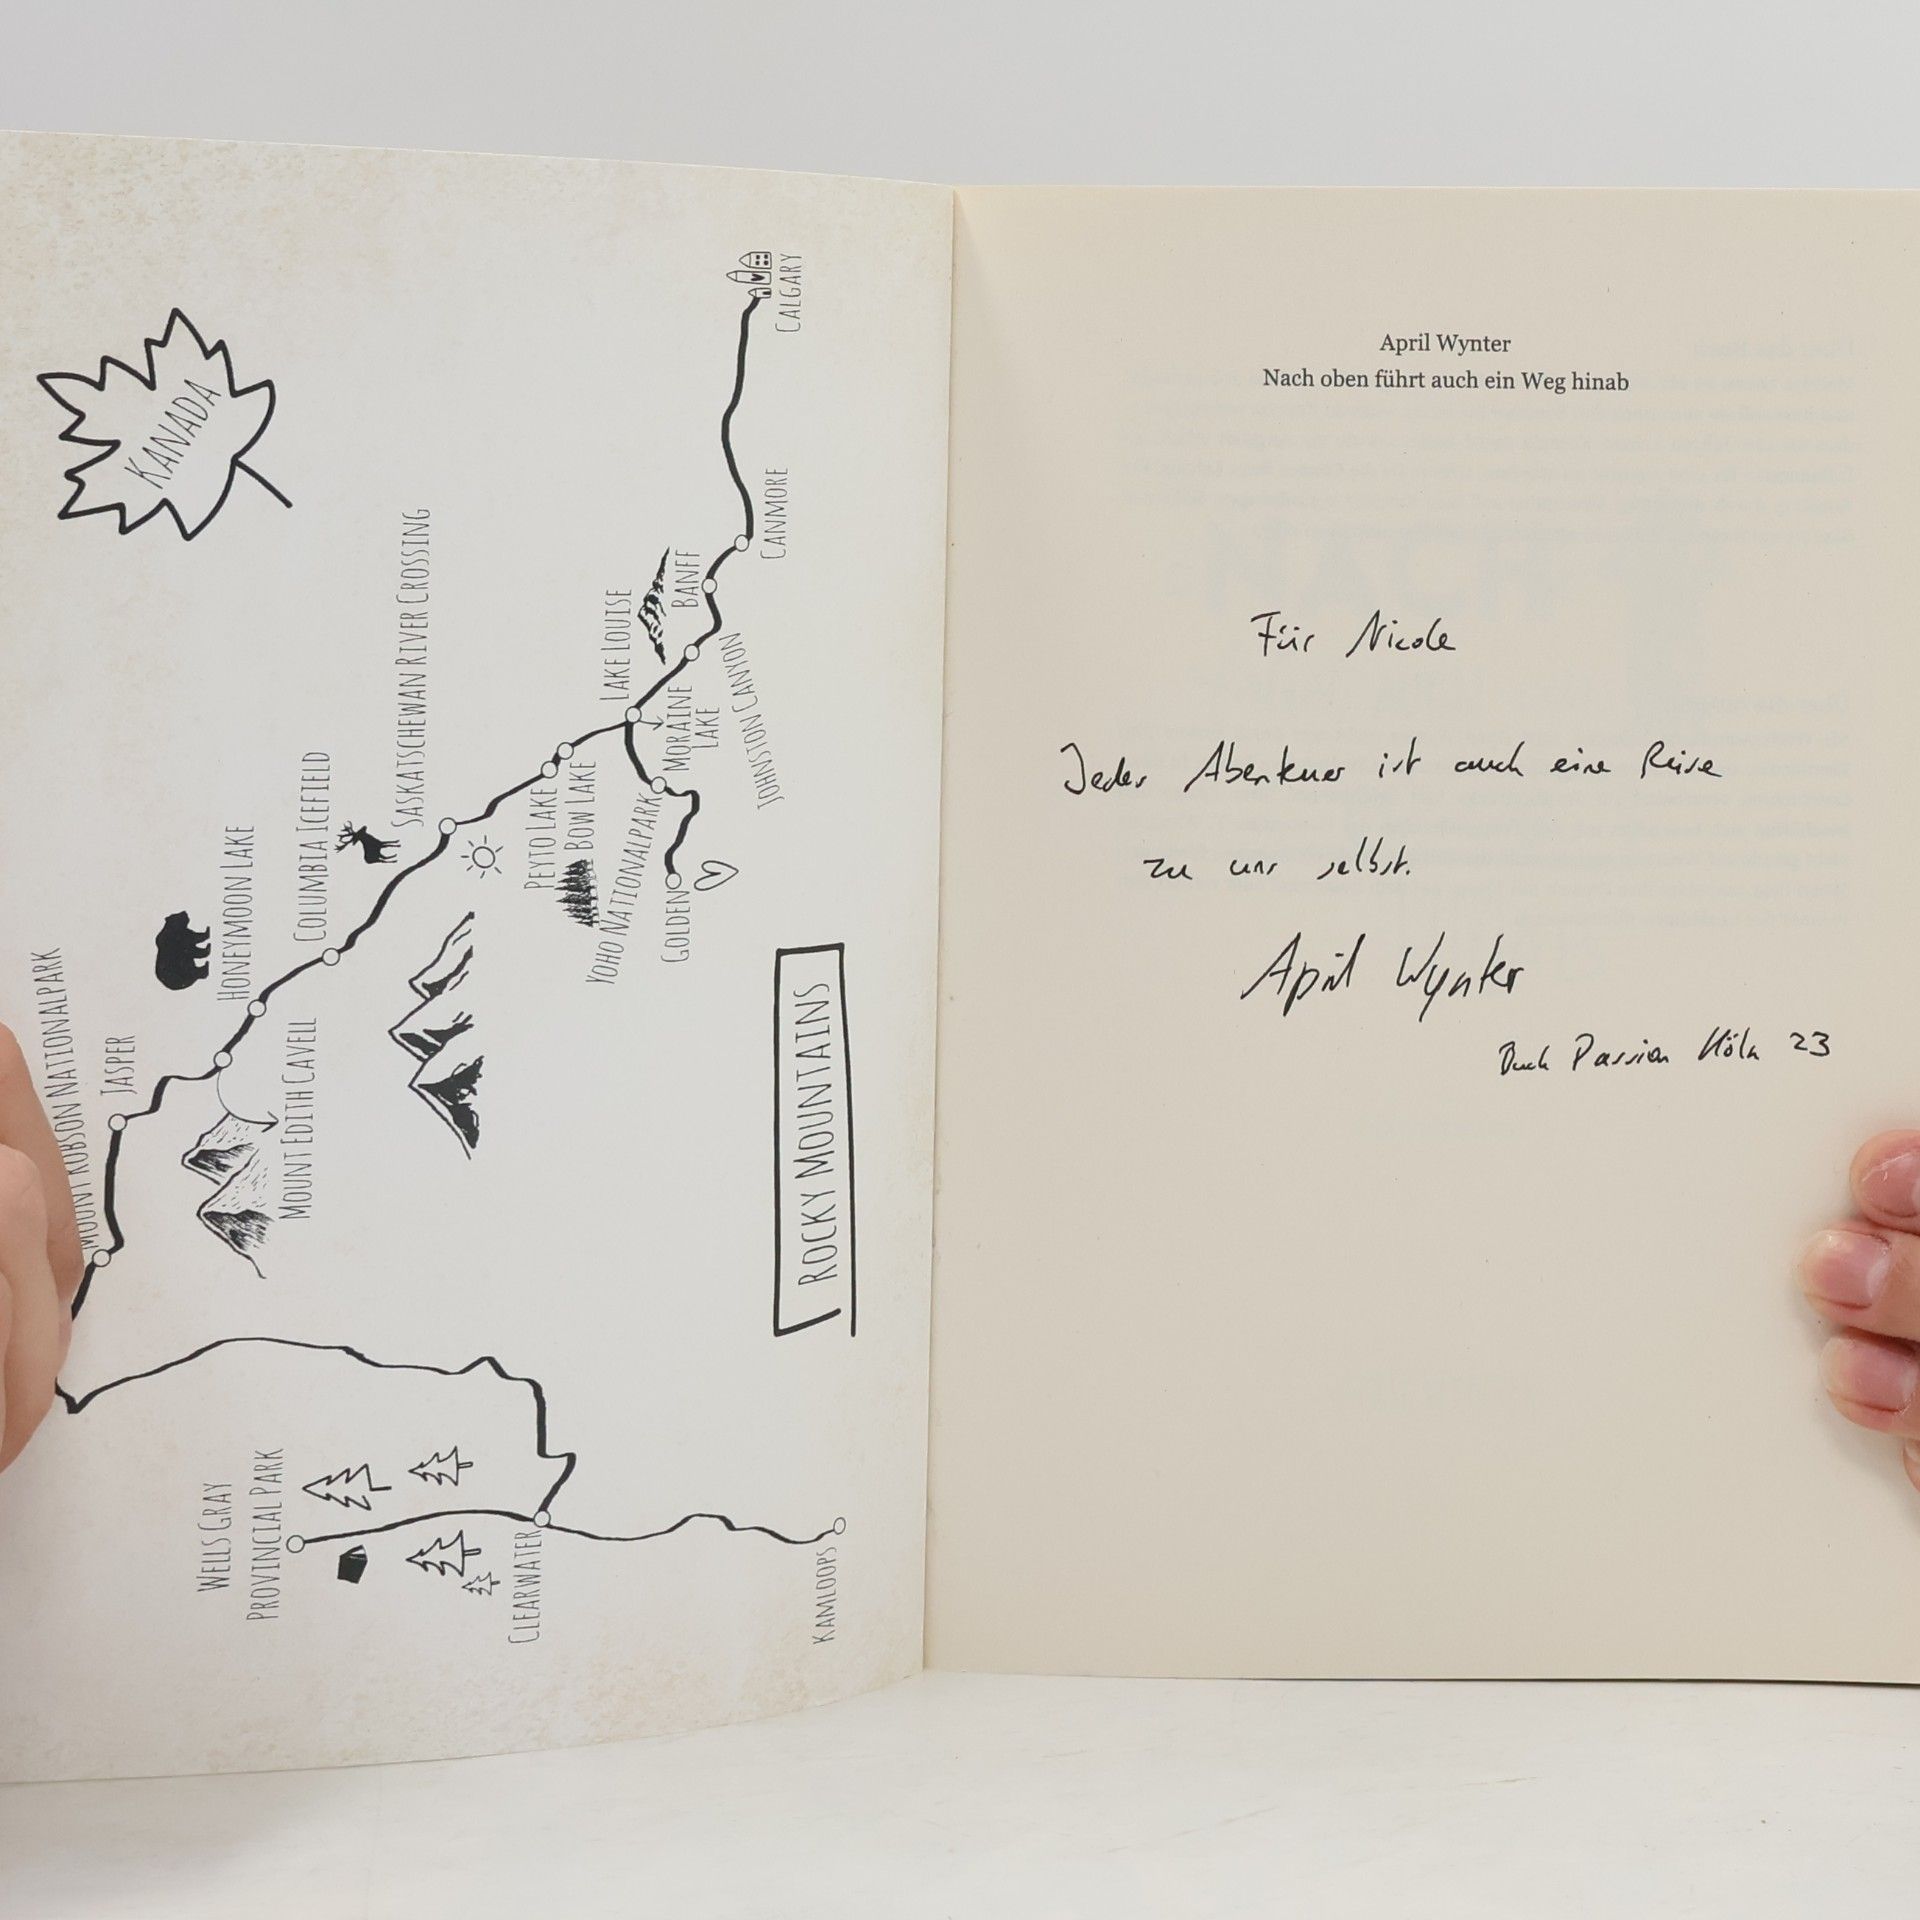 KANADA
CALGARY
CANMORE
BANFF
JOHNSTON CANYON
LAKE LOUISE
MORAINE
LAKE
YOHO NATIONALPARK
GOLDEN
BOW LAKE
PEYTO LAKE
SASKATSCHEWAN RIVER CROSSING
COLUMBIA ICEFIELD
HONEYMOON LAKE
MOUNT EDITH CAVELL
JASPER
MOUNT ROBSON NATIONALPARK
ROCKY MOUNTAINS
WELLS GRAY
PROVINCIAL PARK
CLEARWATER
KAMLOOPS
April Wynter
Nach oben führt auch ein Weg hinab
Für Nicole
Jedes Abenteuer ist auch eine Reise
zu uns selbst.
April Wynter
Buch Passion Köln 23